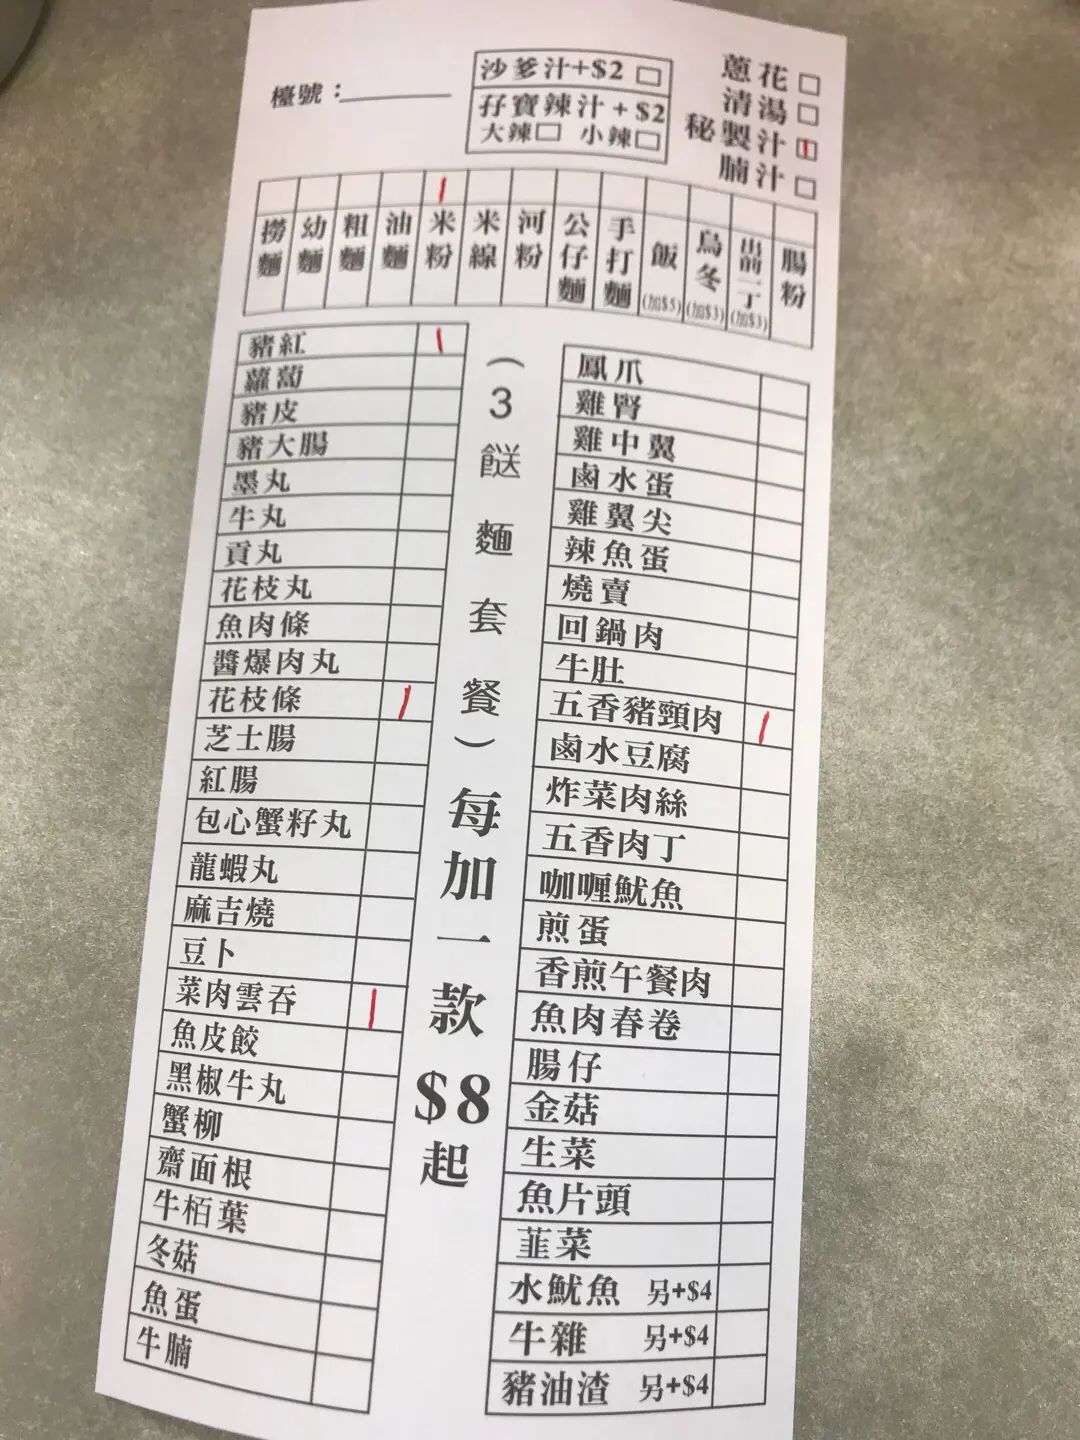 檯號：
沙爹汁+$2
孖寶辣汁+$2
大辣 小辣
蔥花
清湯
秘製汁
腩汁
撈麵
幼麵
粗麵
油麵
米粉
米線
河粉
公仔麵
手打麵
飯(加$5)
烏冬(加$3)
出前一丁(加$3)
腸粉
豬紅
蘿蔔
豬皮
豬大腸
墨丸
牛丸
貢丸
花枝丸
魚肉條
醬爆肉丸
花枝條
芝士腸
紅腸
包心蟹籽丸
龍蝦丸
麻吉燒
豆卜
菜肉雲吞
魚皮餃
黑椒牛丸
蟹柳
齋面根
牛栢葉
冬菇
魚蛋
牛腩
（3餸麵套餐）每加一款$8起
鳳爪
雞腎
雞中翼
鹵水蛋
雞翼尖
辣魚蛋
燒賣
回鍋肉
牛肚
五香豬頸肉
鹵水豆腐
炸菜肉絲
五香肉丁
咖喱魷魚
煎蛋
香煎午餐肉
魚肉春卷
腸仔
金菇
生菜
魚片頭
韮菜
水魷魚 另+$4
牛雜 另+$4
豬油渣 另+$4